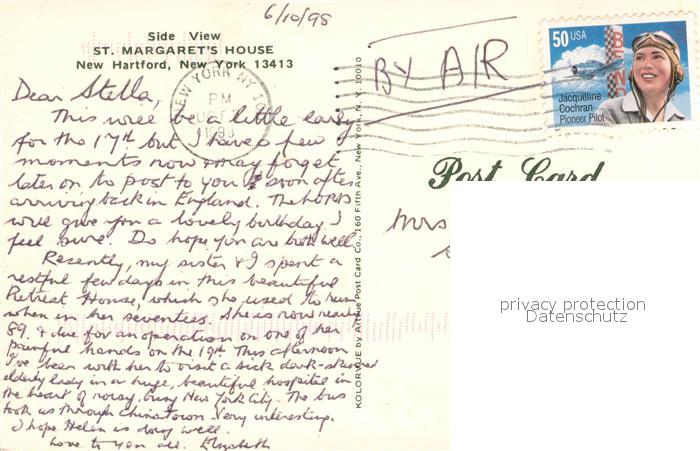 6/10/98
Side View
ST. MARGARET'S HOUSE
New Hartford, New York 13413
BY AIR
NEW YORK NY
PM
1998
50 USA
Jacqueline
Cochran
Pioneer Pilot
Post Card
Mrs
Dear Stella,
This will be a little early
for the 17th but I have a few
moments now & may forget
later on to post to you soon after
arriving back in England. The LORD
will give you a lovely birthday I
feel sure. Do hope you are both well.
Recently, my sister & I spent a
restful few days in this beautiful
Retreat House, which she used to run
when in her seventies. She is now nearly
89, & due for an operation on one of her
painful hands on the 19th. This afternoon
I've been with her to visit a sick dark-skinned
elderly lady in a huge, beautiful hospital in
the heart of noisy, busy New York City. The bus
took us through Chinatown. Very interesting.
I hope Helen is doing well.
Love to you all. Elizabeth
KOLORVUE by Artvue Post Card Co., 160 Fifth Ave., New York, N. Y. 10010
privacy protection
Datenschutz